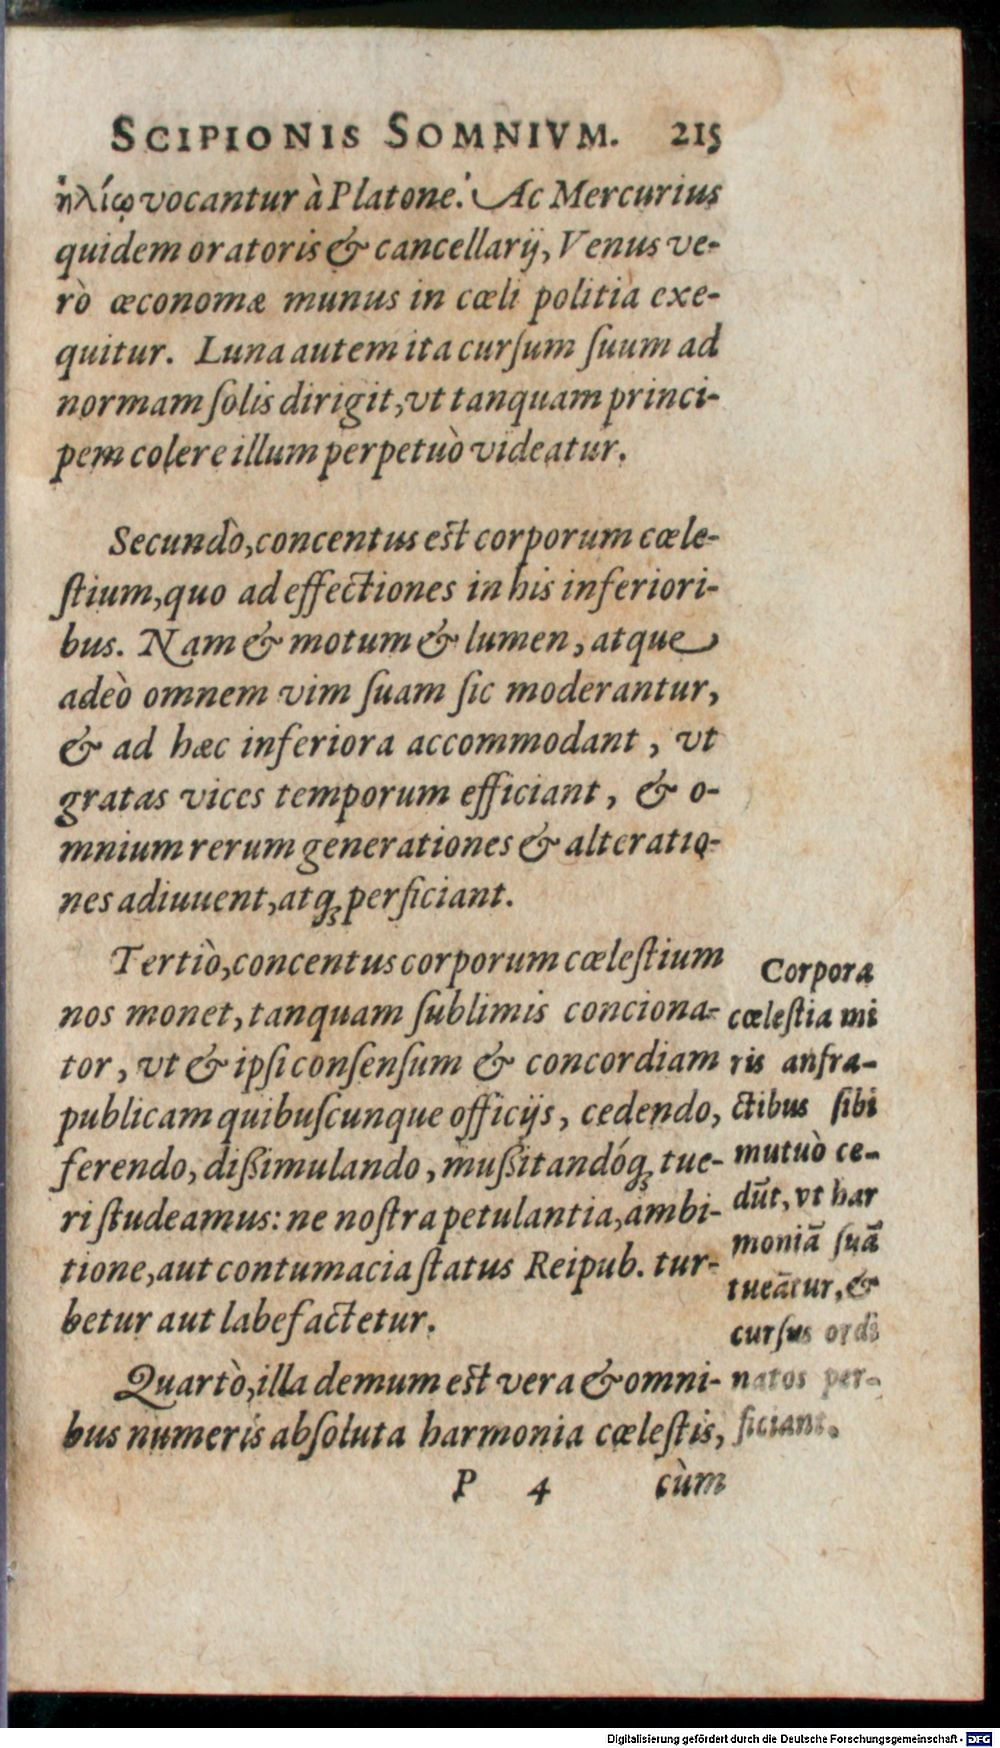 SCIPIONIS SOMNIVM. 215
ἡλίῳ vocantur à Platone. Ac Mercurius
quidem oratoris & cancellarij, Venus ve-
rò œconomæ munus in cœli politia exe-
quitur. Luna autem ita curſum ſuum ad
normam ſolis dirigit, vt tanquam princi-
pem colere illum perpetuò videatur.
Secundò, concentus est corporum cœle-
ſtium, quo ad effectiones in his inferiori-
bus. Nam & motum & lumen, atque
adeò omnem vim ſuam ſic moderantur,
& ad hæc inferiora accommodant, vt
gratas vices temporum efficiant, & o-
mnium rerum generationes & alteratio-
nes adiuuent, atq; perficiant.
Tertiò, concentus corporum cœleſtium
nos monet, tanquam ſublimis conciona-
tor, vt & ipſi conſenſum & concordiam
publicam quibuſcunque officijs, cedendo,
ferendo, dißimulando, mußitandóq; tue-
ri ſtudeamus: ne noſtra petulantia, ambi-
tione, aut contumacia ſtatus Reipub. tur-
betur aut labefactetur.
Quartò, illa demum est vera & omni-
bus numeris abſoluta harmonia cœleſtis,
P 4 cùm
Corpora
cœleſtia mi
ris anfra-
ctibus ſibi
mutuò ce-
dũt, vt har
moniã ſuã
tueãtur, &
curſus ordi
natos per-
ficiant.
Digitalisierung gefördert durch die Deutsche Forschungsgemeinschaft - DFG